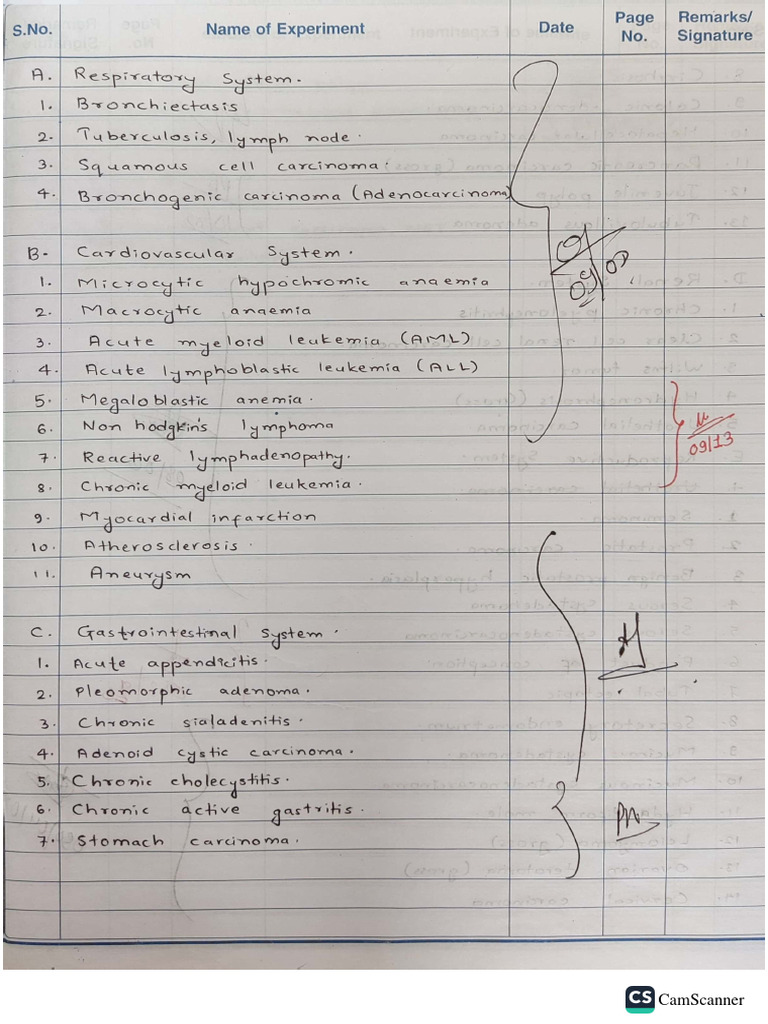 S.No. Name of Experiment Date Page No. Remarks/ Signature
A. Respiratory System.
1. Bronchiectasis
2. Tuberculosis, lymph node.
3. Squamous cell carcinoma.
4. Bronchogenic carcinoma (Adenocarcinoma)
B- Cardiovascular System.
1. Microcytic hypochromic anaemia
2. Macrocytic anaemia
3. Acute myeloid leukemia (AML)
4. Acute lymphoblastic leukemia (ALL)
5. Megaloblastic anemia.
6. Non hodgkin's lymphoma
7. Reactive lymphadenopathy.
8. Chronic myeloid leukemia.
09/13
9. Myocardial infarction
10. Atherosclerosis.
11. Aneurysm
C. Gastrointestinal System.
1. Acute appendicitis.
2. Pleomorphic adenoma.
3. Chronic sialadenitis.
4. Adenoid cystic carcinoma.
5. Chronic cholecystitis.
6. Chronic active gastritis.
7. Stomach carcinoma.
CS CamScanner